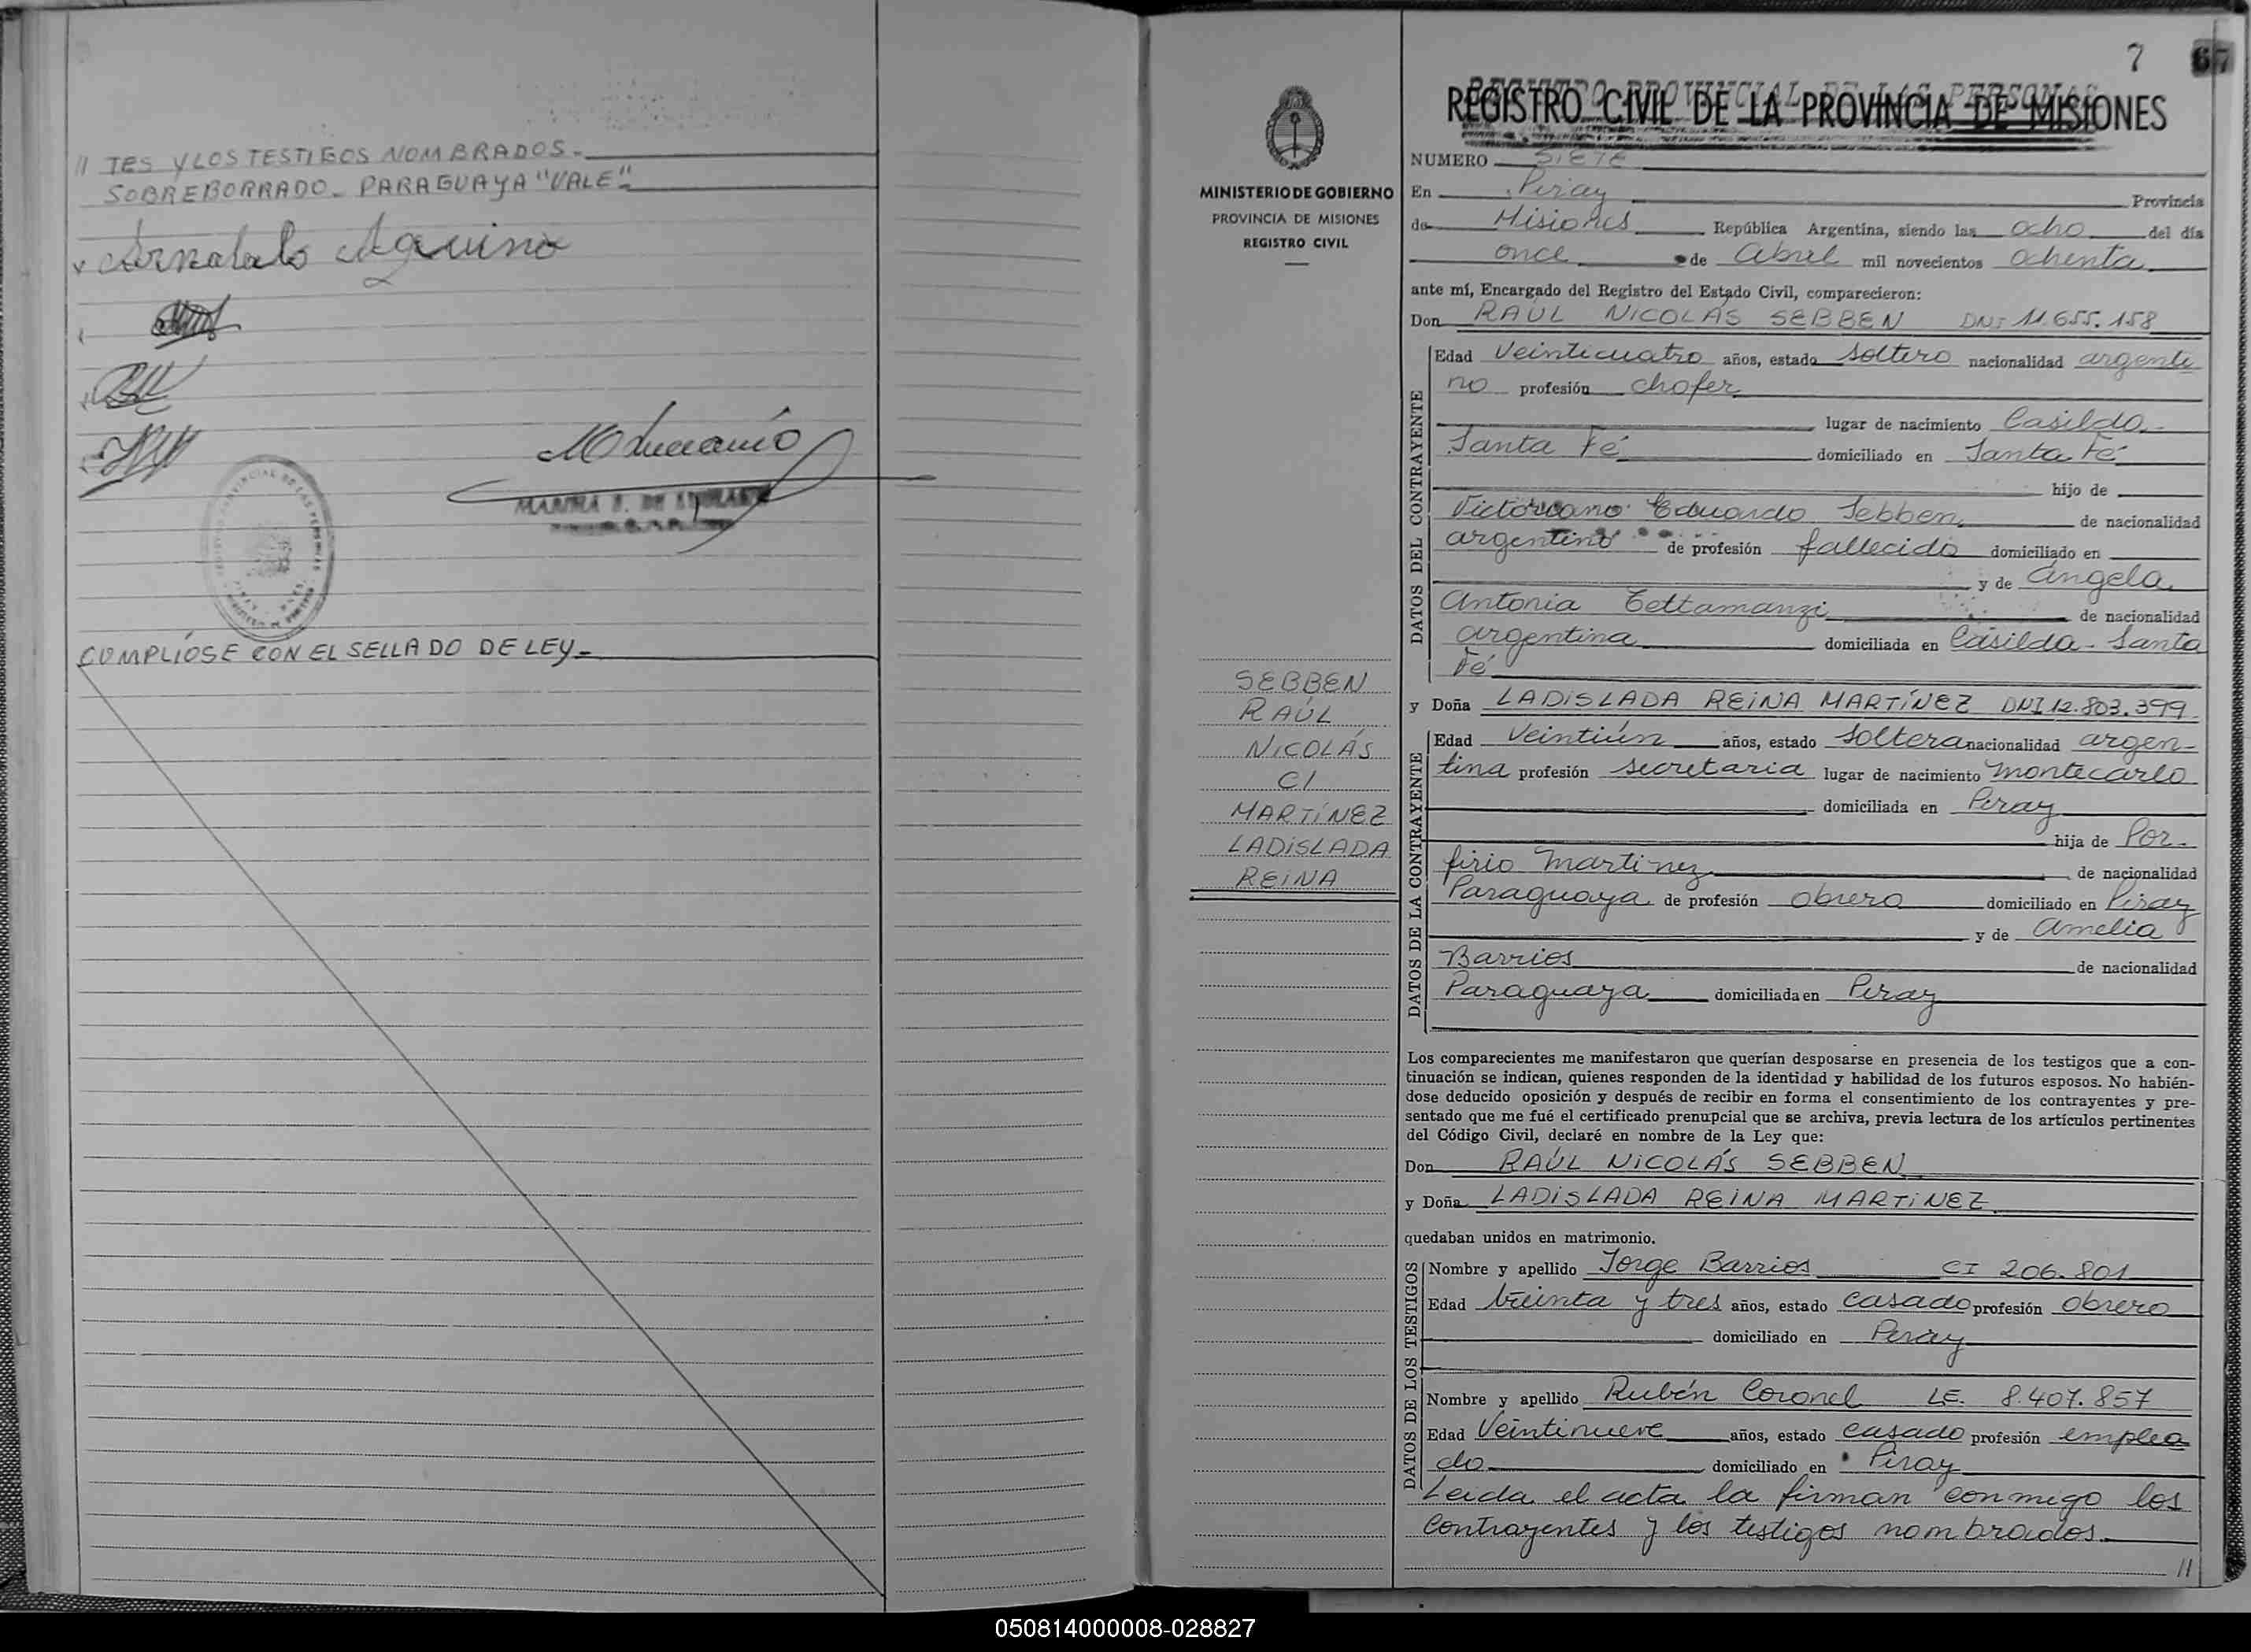 // TES Y LOS TESTIGOS NOMBRADOS.-
SOBREBORRADO - PARAGUAYA "VALE".-
Aquino
MARTHA
CUMPLIÓSE CON EL SELLADO DE LEY.-
7 67
REGISTRO PROVINCIAL DE LAS PERSONAS
REGISTRO CIVIL DE LA PROVINCIA DE MISIONES
MINISTERIO DE GOBIERNO
PROVINCIA DE MISIONES
REGISTRO CIVIL
SEBBEN
RAÚL
NICOLÁS
C/
MARTÍNEZ
LADISLADA
REINA
NUMERO SIETE
En Piray Provincia
de Misiones República Argentina, siendo las ocho del día
once de Abril mil novecientos ochenta
ante mí, Encargado del Registro del Estado Civil, comparecieron:
Don RAÚL NICOLÁS SEBBEN DNI 11.655.158
DATOS DEL CONTRAYENTE
Edad Veinticuatro años, estado soltero nacionalidad argenti
no profesión chofer
lugar de nacimiento Casilda.-
Santa Fé domiciliado en Santa Fé
hijo de
Victoriano Eduardo Sebben de nacionalidad
argentino de profesión fallecido domiciliado en
y de Angela
Antonia Tettamanzi de nacionalidad
argentina domiciliada en Casilda - Santa
Fé
y Doña LADISLADA REINA MARTÍNEZ DNI 12.803.399
DATOS DE LA CONTRAYENTE
Edad Veintiún años, estado soltera nacionalidad argen-
tina profesión secretaria lugar de nacimiento Montecarlo
domiciliada en Piray
hija de Por-
firio Martinez de nacionalidad
Paraguaya de profesión obrero domiciliado en Piray
y de Amelia
Barrios de nacionalidad
Paraguaya domiciliada en Piray
Los comparecientes me manifestaron que querían desposarse en presencia de los testigos que a con-
tinuación se indican, quienes responden de la identidad y habilidad de los futuros esposos. No habién-
dose deducido oposición y después de recibir en forma el consentimiento de los contrayentes y pre-
sentado que me fué el certificado prenupcial que se archiva, previa lectura de los artículos pertinentes
del Código Civil, declaré en nombre de la Ley que:
Don RAÚL NICOLÁS SEBBEN
y Doña LADISLADA REINA MARTINEZ
quedaban unidos en matrimonio.
DATOS DE LOS TESTIGOS
Nombre y apellido Jorge Barrios CI 206.801
Edad treinta y tres años, estado casado profesión obrero
domiciliado en Piray
Nombre y apellido Rubén Coronel LE. 8.407.857
Edad Veintinueve años, estado casado profesión emplea
do domiciliado en Piray
Leida el acta la firman conmigo los
contrayentes y los testigos nombrados.
//
050814000008-028827